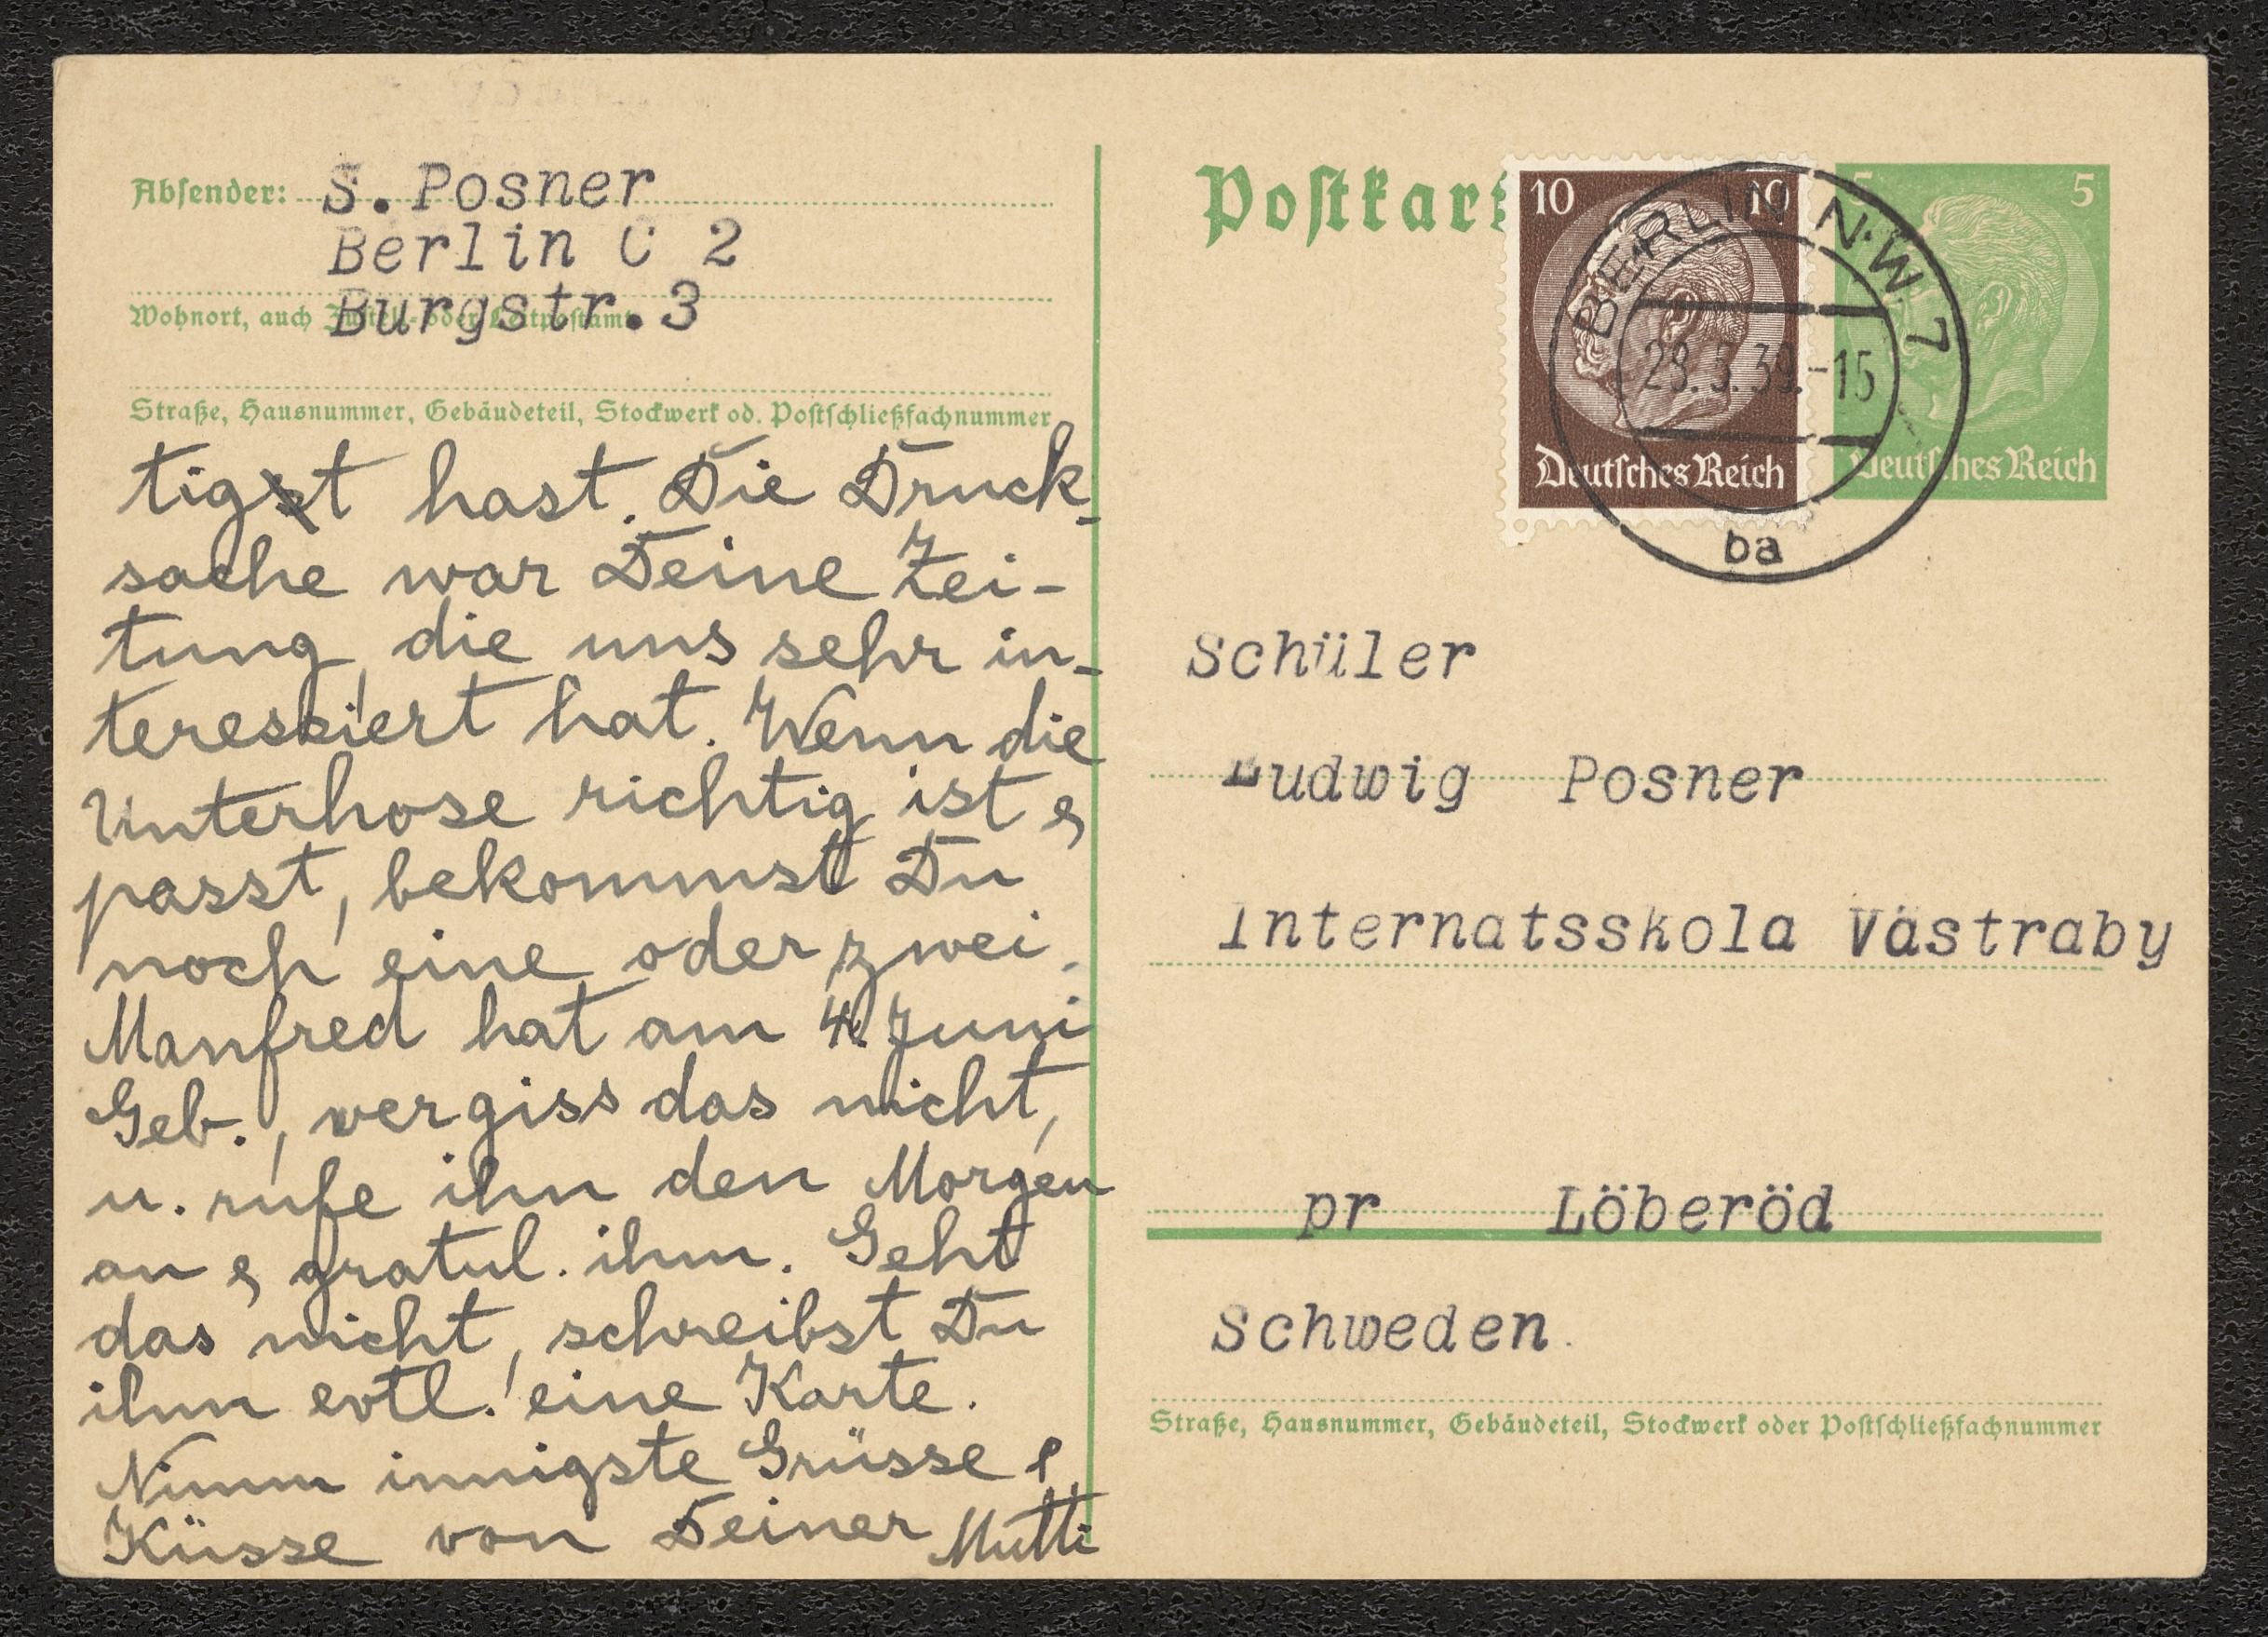 Absender: S. Posner
Berlin C 2
Burgstr. 3
Wohnort, auch Zustell- oder Leitpostamt
Straße, Hausnummer, Gebäudeteil, Stockwerk od. Postschließfachnummer
tigt hast. Die Druck-
sache war Deine Zei-
tung, die uns sehr in-
teressiert hat. Wenn die
Unterhose richtig ist &
passt, bekommst Du
noch eine oder zwei.
Manfred hat am 4. Juni
Geb., vergiss das nicht,
u. rufe ihn den Morgen
an & gratul. ihm. Geht
das nicht, schreibst Du
ihm evtl. eine Karte.
Nimm innigste Grüsse &
Küsse von Deiner Mutti
Postkart
10 10
Deutsches Reich
5 5
Deutsches Reich
BERLIN N.W. 7
39.-15
ba
Schüler
Ludwig Posner
Internatsskola Västraby
pr Löberöd
Schweden.
Straße, Hausnummer, Gebäudeteil, Stockwerk oder Postschließfachnummer